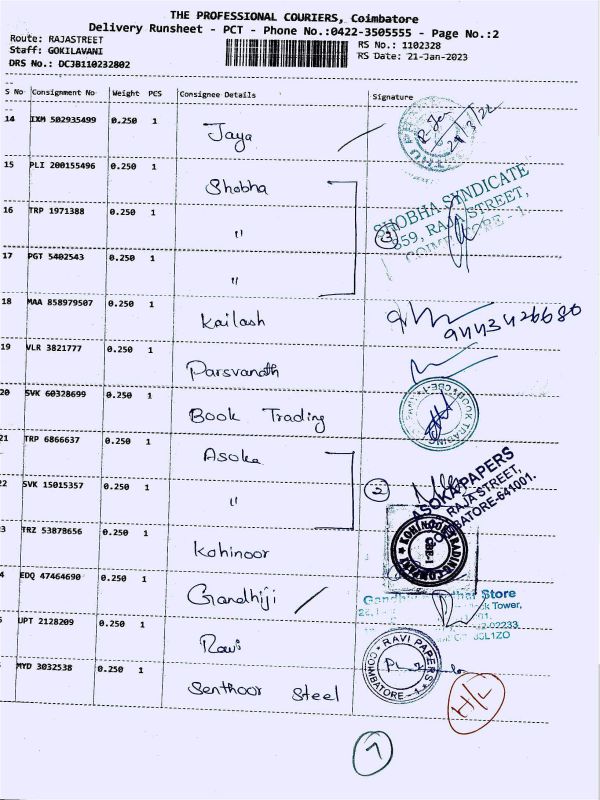 THE PROFESSIONAL COURIERS, Coimbatore
Delivery Runsheet - PCT - Phone No.:0422-3505555 - Page No.:2
Route: RAJASTREET
Staff: GOKILAVANI
DRS No.: DCJB110232802
RS No.: 1102328
RS Date: 21-Jan-2023
S No Consignment No Weight PCS Consignee Details Signature
14 IXM 502935499 0.250 1 Jaya
15 PLI 200155496 0.250 1 Shobha
SHOBHA SYNDICATE
359, RAJA STREET,
COIMBATORE - 1.
16 TRP 1971388 0.250 1 "
3
17 PGT 5402543 0.250 1 "
18 MAA 858979507 0.250 1 Kailash
9443426680
19 VLR 3821777 0.250 1 Parsvanath
20 SVK 60328699 0.250 1 Book Trading
BOOK TRADING CBE-1
21 TRP 6866637 0.250 1 Asoka
2
ASOKA PAPERS
RAJA STREET,
COIMBATORE-641001.
22 SVK 15015357 0.250 1 "
3 TRZ 53878656 0.250 1 Kohinoor
KOHINOOR TRADING COMPANY
CBE-1
4 EDQ 47464690 0.250 1 Gandhiji
Store
Tower,
UPT 2128209 0.250 1 Ravi
RAVI PAPERS
COIMBATORE - 1
MYD 3032538 0.250 1 Senthoor Steel
H/L
7